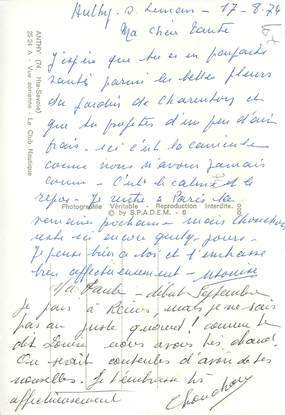 Anthy s. Léman - 17-8-74
Ma chère Tante
J'espère que tu es en parfaite
santé parmi les belles fleurs
du jardin de Charenton et
que tu profites d'un peu d'air
frais - ici c'est la canicule
comme nous n'avons jamais
connu - C'est le calme et le
repos - Je rentre à Paris la
semaine prochaine - mais Chouchou
reste ici encore quelques jours -
Je pense bien à toi et t'embrasse
bien affectueusement -
Ma Tante - début Septembre
je pars à Reims, mais je ne sais
pas au juste quand ! comme te
dit Louise nous avons très chaud !
On serait contentes d'avoir de tes
nouvelles. Je t'embrasse très
affectueusement
Chouchou
ANTHY (74. Hte-Savoie)
25-24 A - Vue aérienne - Le Club Nautique
Photographie Véritable - Reproduction Interdite
© by S.P.A.D.E.M. - 6